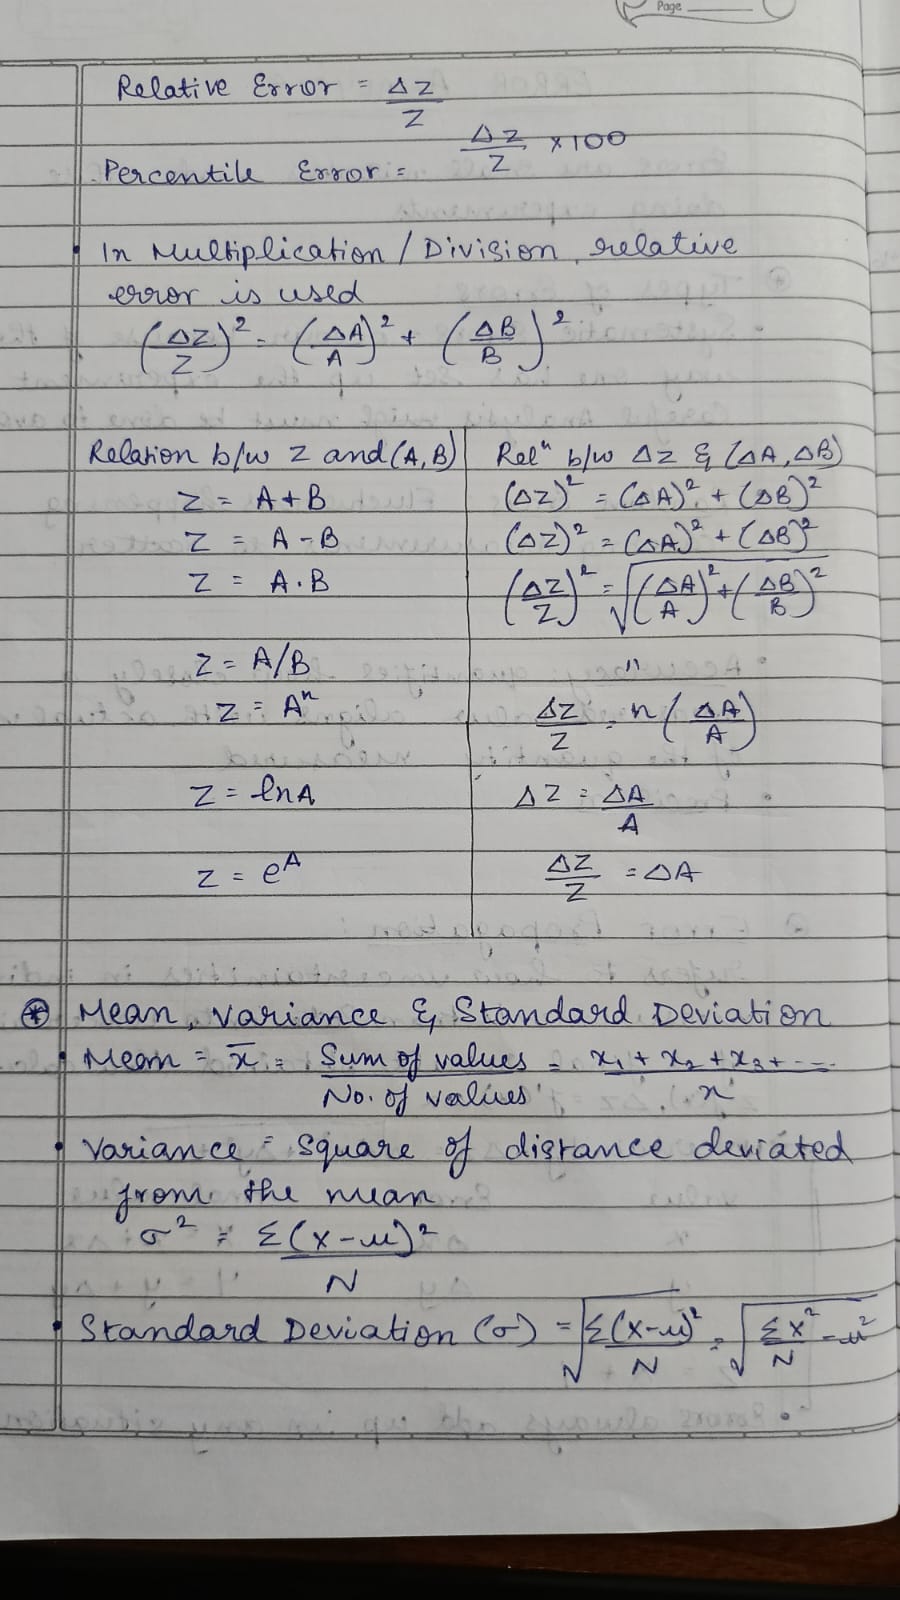 Page
Relative Error = ΔZ/Z
Percentile Error = ΔZ/Z × 100
• In Multiplication / Division, relative
error is used
(ΔZ/Z)² = (ΔA/A)² + (ΔB/B)²
Relation b/w Z and (A, B) Relⁿ b/w ΔZ & (ΔA, ΔB)
Z = A + B (ΔZ)² = (ΔA)² + (ΔB)²
Z = A - B (ΔZ)² = (ΔA)² + (ΔB)²
Z = A·B (ΔZ/Z)² = √((ΔA/A)² + (ΔB/B)²)
Z = A/B "
Z = Aⁿ ΔZ/Z = n(ΔA/A)
Z = lnA ΔZ = ΔA/A
Z = e^A ΔZ/Z = ΔA
⊛ Mean, Variance & Standard Deviation
• Mean = x̄ = Sum of values/No. of values = x₁ + x₂ + x₃ + ..../n
• Variance = Square of distance deviated
from the mean
σ² = Σ(x-μ)²/N
• Standard Deviation (σ) = √(Σ(x-μ)²/N) = √(Σx²/N - μ²)